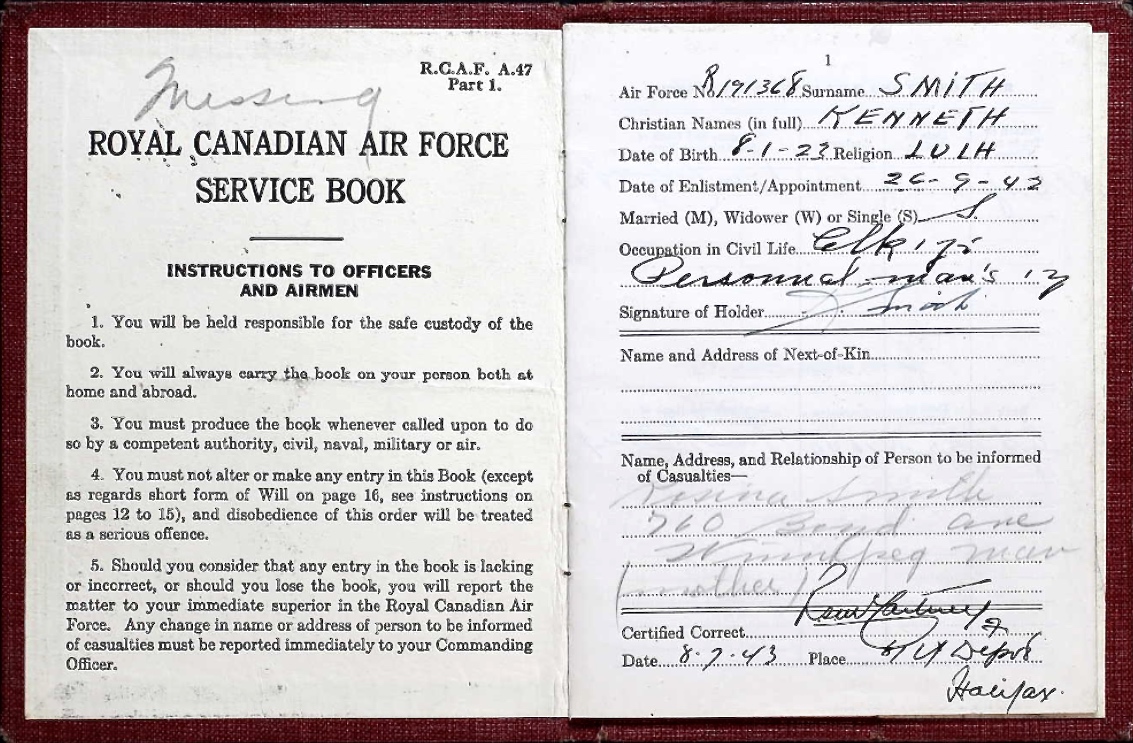 Missing
R.C.A.F. A.47
Part 1.
ROYAL CANADIAN AIR FORCE
SERVICE BOOK
INSTRUCTIONS TO OFFICERS
AND AIRMEN
1. You will be held responsible for the safe custody of the
book.
2. You will always carry the book on your person both at
home and abroad.
3. You must produce the book whenever called upon to do
so by a competent authority, civil, naval, military or air.
4. You must not alter or make any entry in this Book (except
as regards short form of Will on page 16, see instructions on
pages 12 to 15), and disobedience of this order will be treated
as a serious offence.
5. Should you consider that any entry in the book is lacking
or incorrect, or should you lose the book, you will report the
matter to your immediate superior in the Royal Canadian Air
Force. Any change in name or address of person to be informed
of casualties must be reported immediately to your Commanding
Officer.
1
Air Force No R191368 Surname SMITH
Christian Names (in full) KENNETH
Date of Birth 8-1-23 Religion LUTH
Date of Enlistment/Appointment 26-9-42
Married (M), Widower (W) or Single (S) S.
Occupation in Civil Life Clk
Personnal man's
Signature of Holder Smith
Name and Address of Next-of-Kin
Name, Address, and Relationship of Person to be informed
of Casualties—
Rosina Smith
760 Bond ave
Winnipeg man
(mother)
Certified Correct
Date 8.7.43 Place Depot
Halifax.